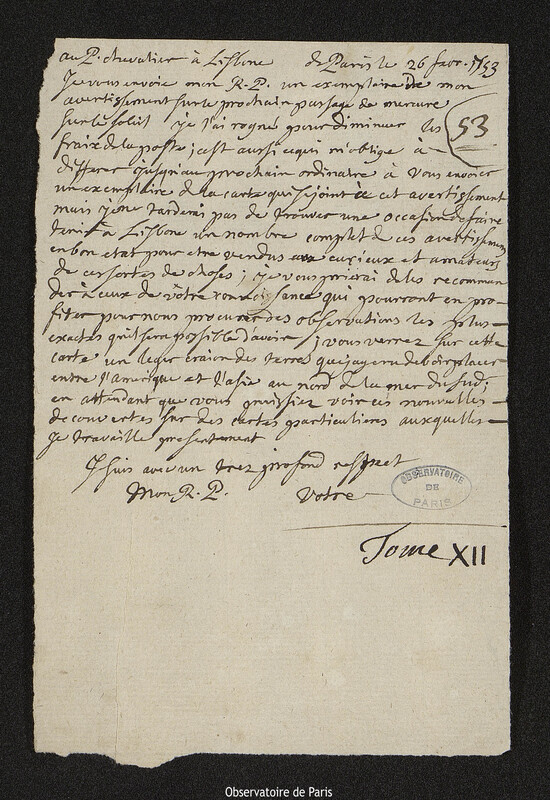 au P. chevalier à Lisbone de Paris le 26 fevr. 1753
Je vous envoie mon R. P. un exemplaire de mon
avertissement sur le prochain passage de mercure
sur le soleil je l'ai rogné pour diminuer les
53
fraix de la poste ; c'est aussi ce qui m'oblige à
differer jusqu'au prochain ordinaire à vous envoier
un exemplaire de la carte qui se joint à cet avertissement
mais je ne tarderai pas de trouver une occasion de faire
tenir à Lisbone un nombre complet de ces avertissemens
en bon etat pour etre vendus aux curieux et amateurs
de ces sortes de choses ; je vous prierai de les recomman
der à ceux de vôtre connoissance qui pourront en pro
fiter pour nous procurer des observations les plus
exactes qu'il sera possible d'avoir ; vous verrez sur cette
carte un leger craion des terres que j'ay cru devoir placer
entre l'amerique et l'asie au nord de la mer du sud ;
en attendant que vous puissiez voir ces nouvelles
decouvertes sur des cartes particulieres auxquelles
je travaille presentement
Je suis avec un tres profond respect
Mon R. P. Votre
OBSERVATOIRE
DE
PARIS
Tome XII
Observatoire de Paris